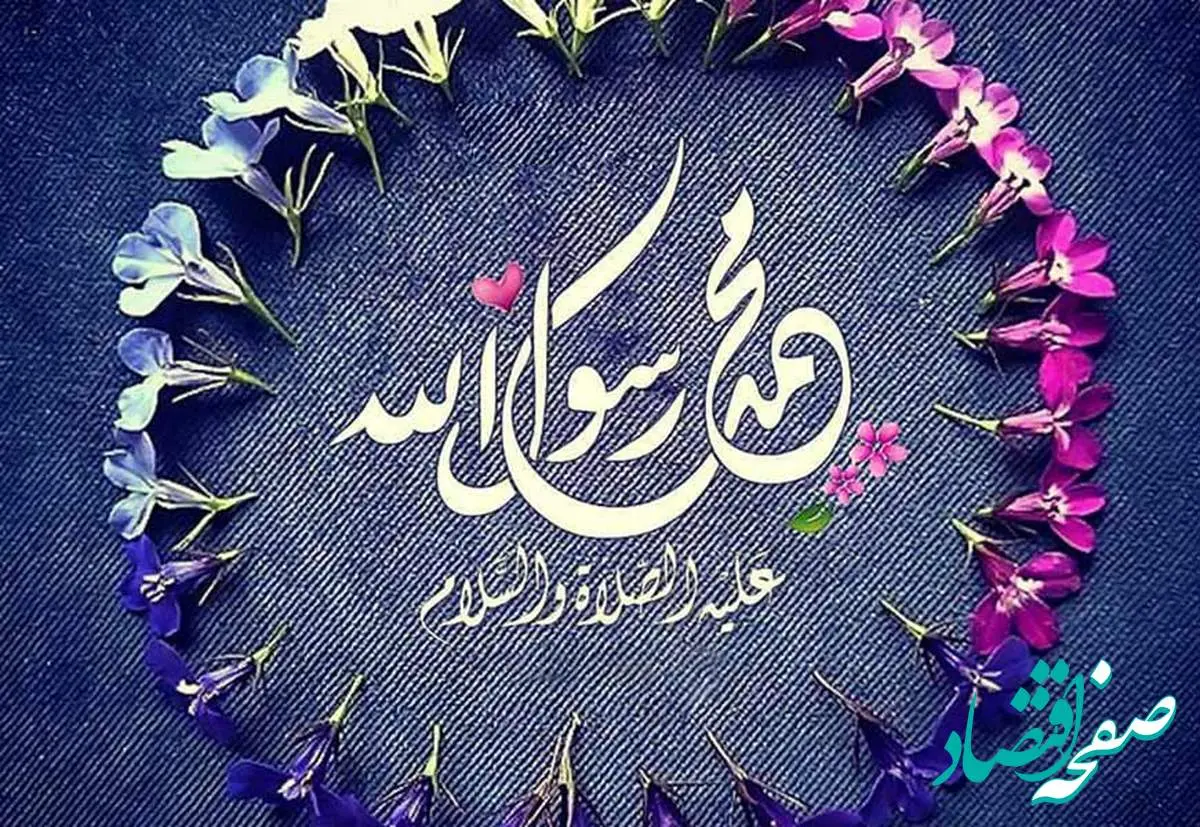 محمد رسول الله
عَلَيْهِ الصَّلَاةُ وَالسَّلَام
صفحه اقتصاد